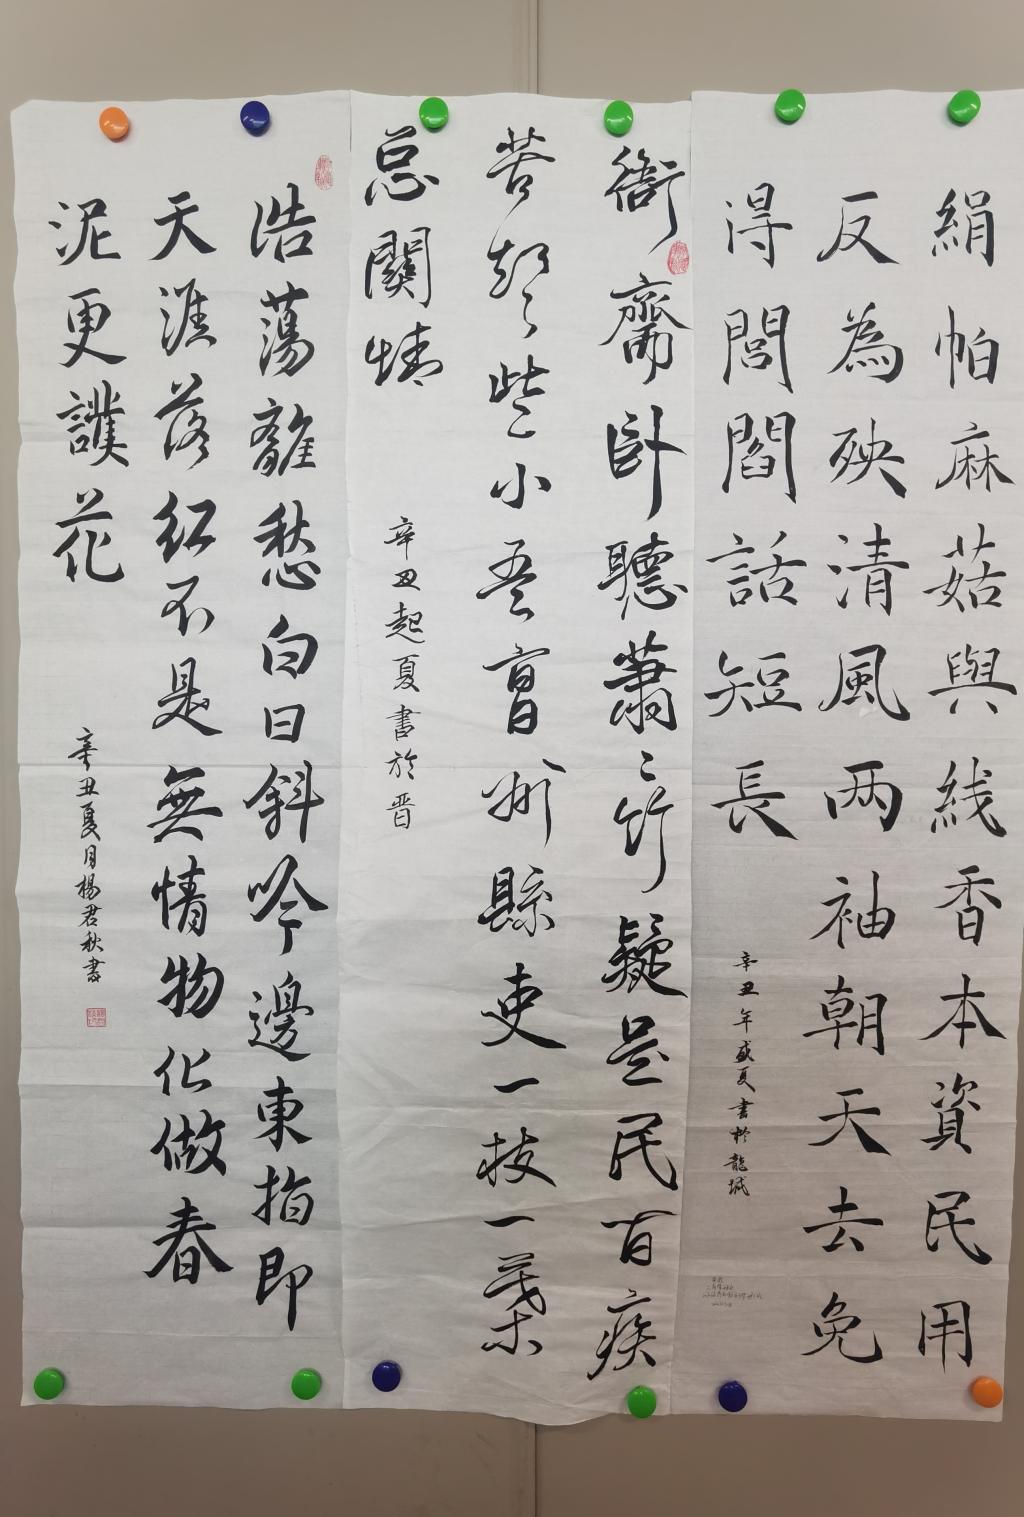 絹帕麻菇與线香本資民用
反為殃清風两袖朝天去免
得閭閻話短長
辛丑年盛夏書於龍城
衙齋卧聽蕭〻竹疑是民间疾
苦聲些小吾曹州縣吏一枝一葉
总關情
辛丑起夏書於晋
浩蕩離愁白日斜吟邊東指即
天涯落红不是無情物化做春
泥更護花
辛丑夏月楊君秋書